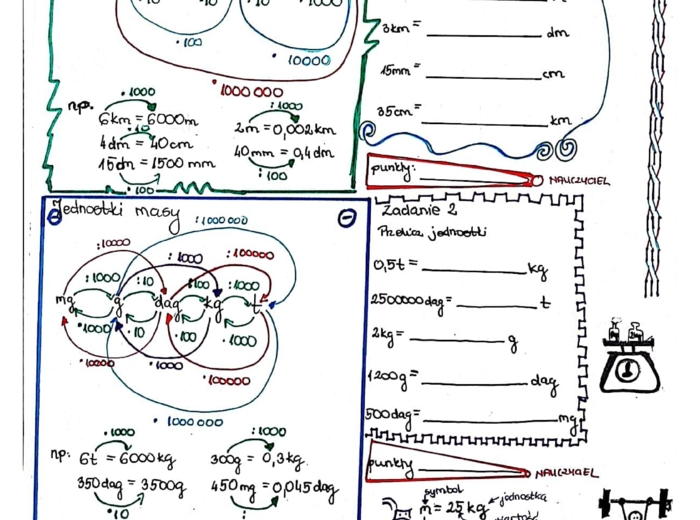 ·100
·10000
·1000 000
np.
·1000
6km = 6000m
·10
4dm = 40cm
15dm = 1500 mm
·100
:1000
2m = 0,002km
40mm = 0,4dm
:100
3km = ________ dm
15mm = ________ cm
35cm = ________ km
punkty: ________ NAUCZYCIEL
Jednostki masy
:1000 000
:10000 :1000 :100000
:1000 :10 :100 :1000
mg g dag kg t
·1000 ·10 ·100 ·1000
·10000 ·1000 ·100000
·1000 000
np:
·1000
6t = 6000kg
350dag = 3500g
·10
:1000
300g = 0,3kg
450mg = 0,045dag
:
Zadanie 2
Przelicz jednostki
0,5t = ________ kg
2500000dag = ________ t
2kg = ________ g
1200g = ________ dag
500dag = ________ mg
punkty ________ NAUCZYCIEL
symbol
jednostka
m = 25 kg
wartość